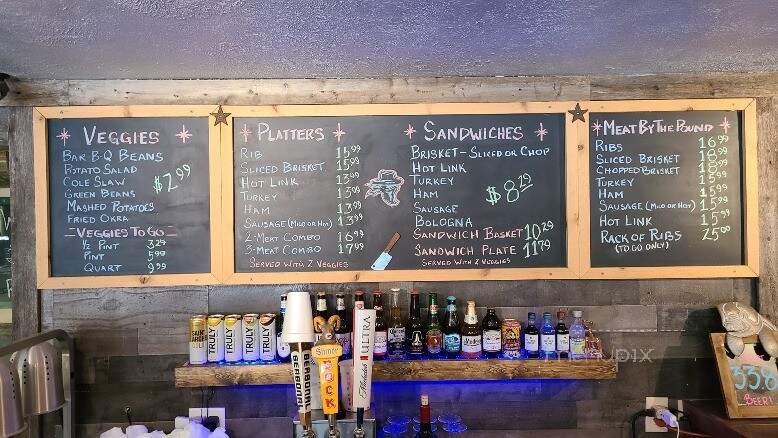 VEGGIES
BAR B-Q BEANS
POTATO SALAD
COLE SLAW
GREEN BEANS
MASHED POTATOES
FRIED OKRA
$2.99
VEGGIES TO GO
½ PINT 3.29
PINT 5.99
QUART 9.99
PLATTERS
RIB
SLICED BRISKET 15.99
HOT LINK 13.99
TURKEY 13.99
HAM 13.99
SAUSAGE (MILD OR HOT) 13.99
2-MEAT COMBO 16.99
3-MEAT COMBO 17.99
SERVED WITH 2 VEGGIES
SANDWICHES
BRISKET-SLICED OR CHOP
HOT LINK
TURKEY
HAM
SAUSAGE
BOLOGNA
$8.29
SANDWICH BASKET 10.29
SANDWICH PLATE 11.79
SERVED WITH 2 VEGGIES
MEAT BY THE POUND
RIBS 16.99
SLICED BRISKET 18.99
CHOPPED BRISKET 18.99
TURKEY 15.99
HAM 15.99
SAUSAGE (MILD OR HOT) 15.99
HOT LINK 15.99
RACK OF RIBS 25.00
(TO GO ONLY)
TRULY
TRULY
TRULY
SHINER
BOCK
ULTRA
Michelob
SEADOG
33.8
BEER!